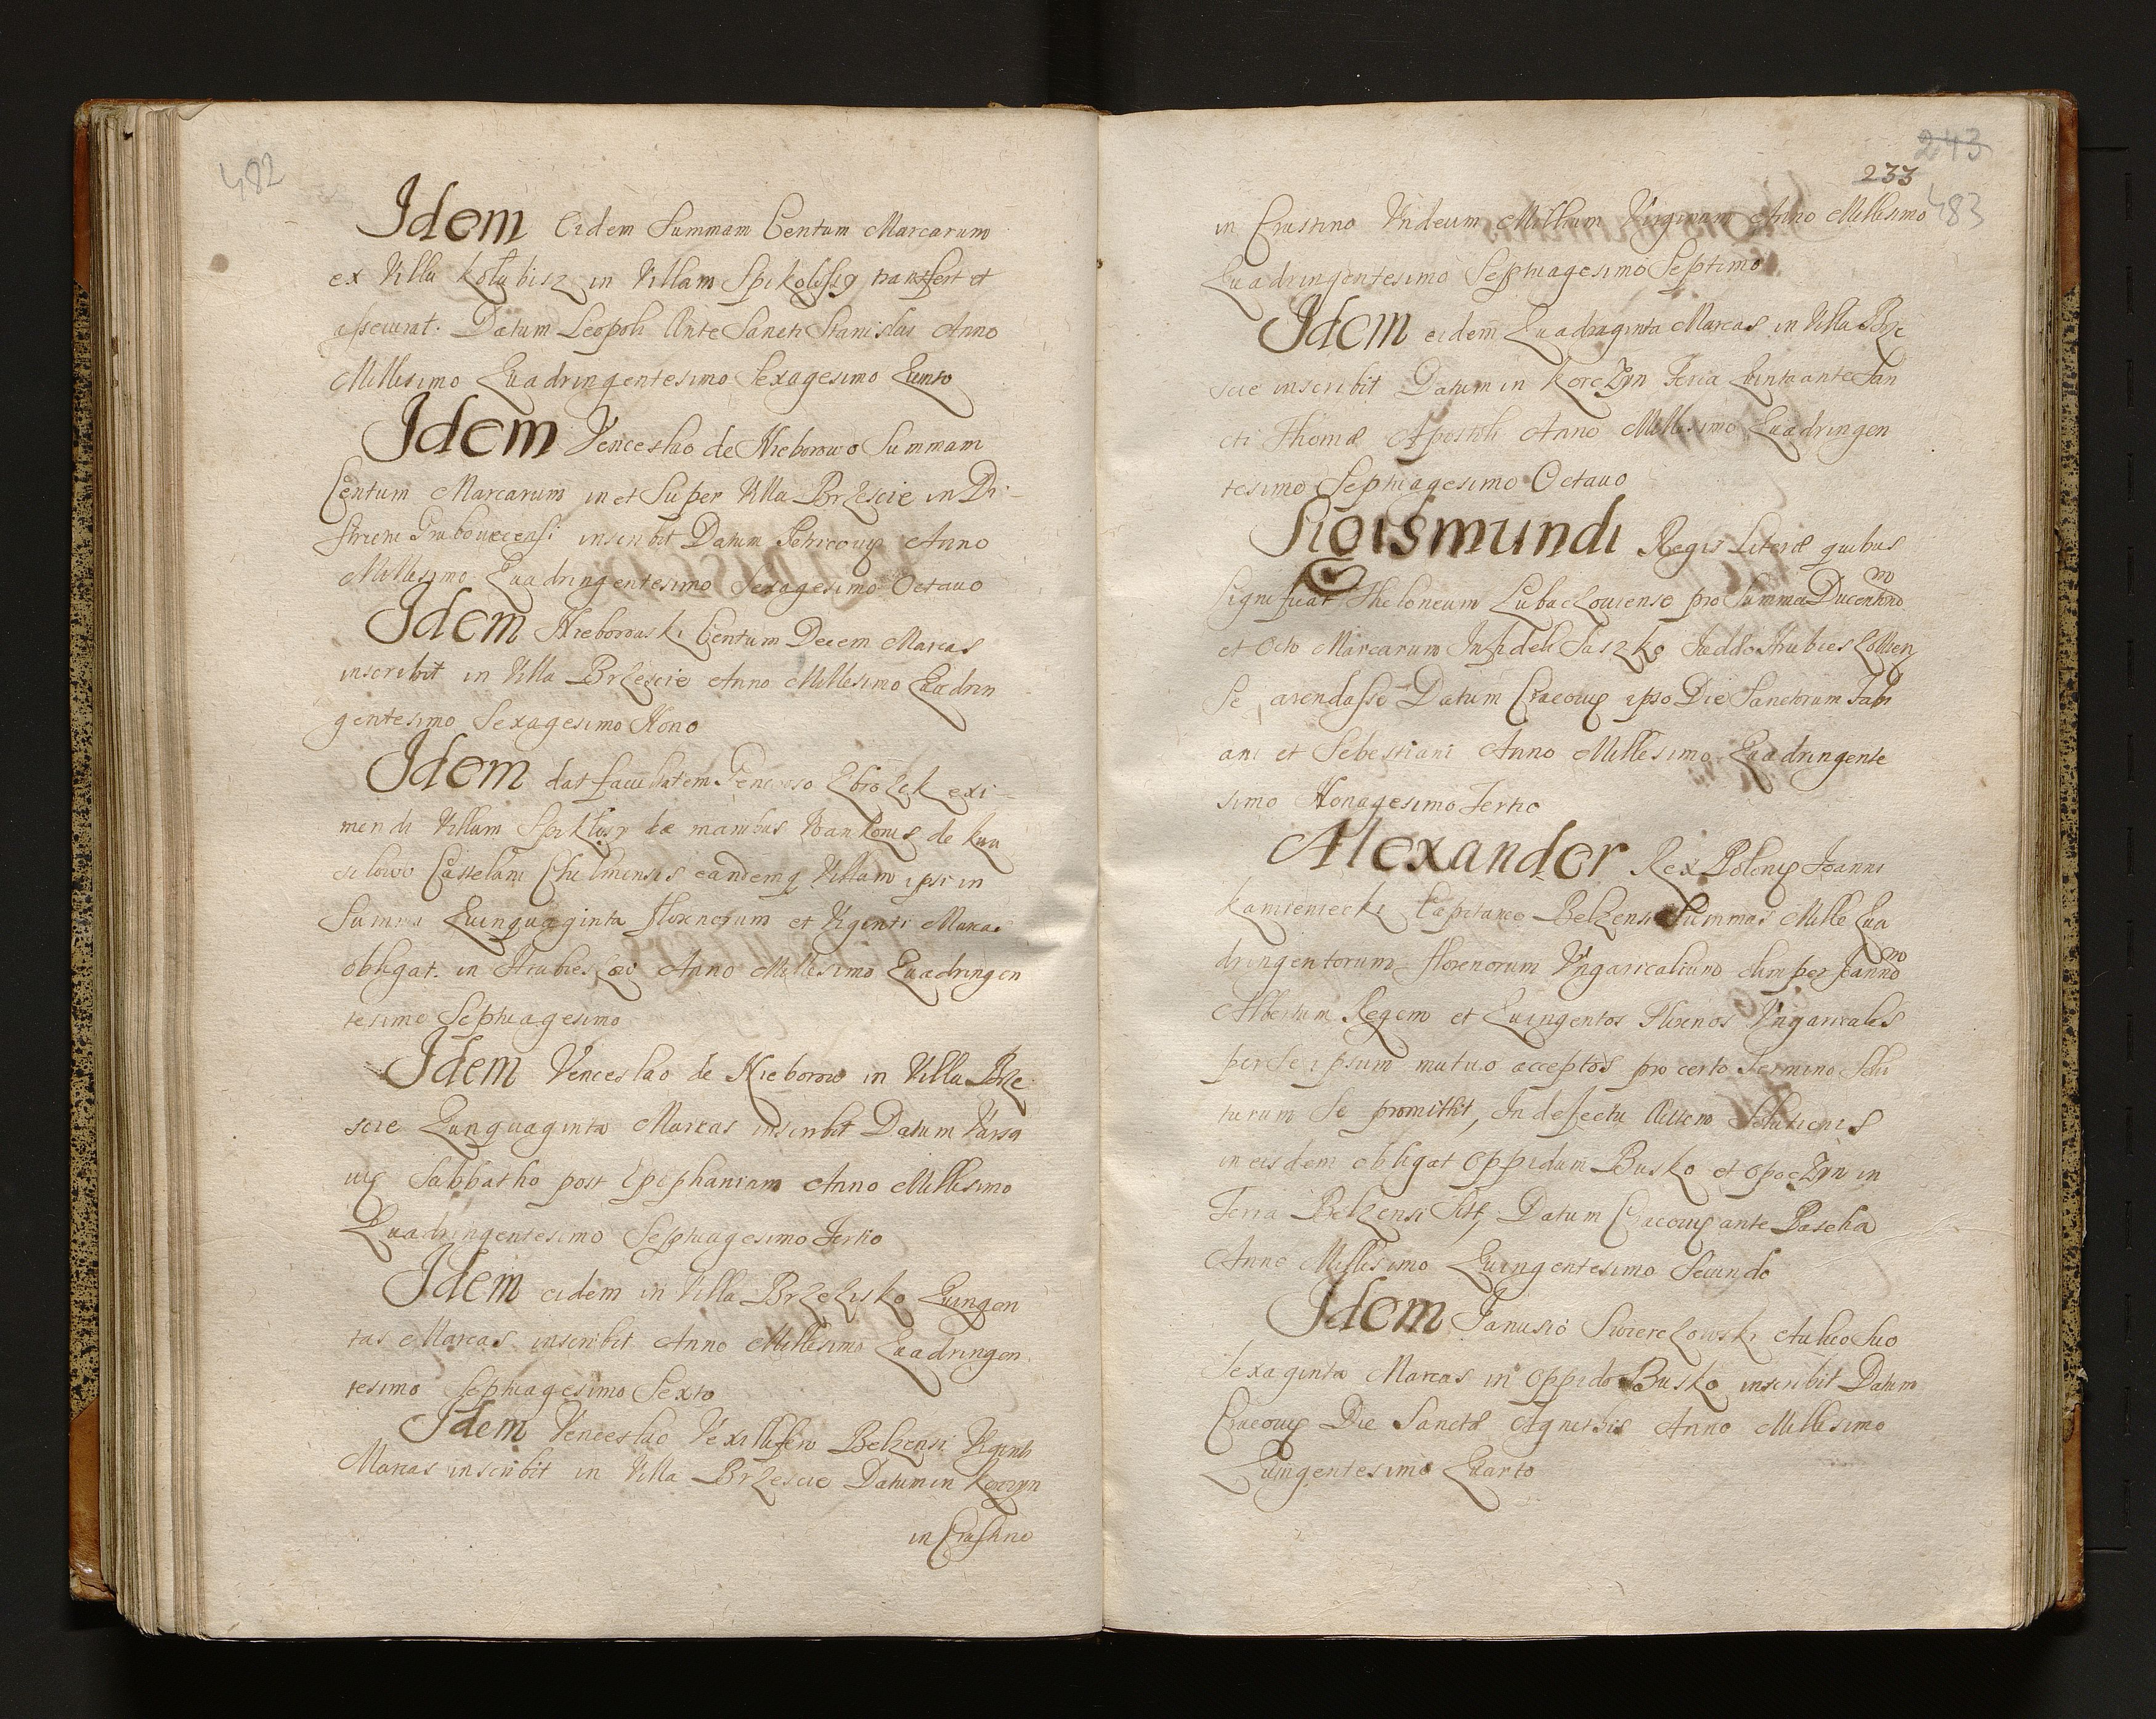 482
Idem Eidem Summam Centum Marcarum
ex Villa Kolubisz in Villam Spikolossy transfert et
assecurat. Datum Leopoli Ante Sancti Stanislai Anno
Millesimo Quadringentesimo Sexagesimo Quinto
Idem Venceslao de Nieborowo Summam
Centum Marcarum in et Super Villa Brzescie in Di-
strictu Grabouecensi inscribit Datum Petricouiæ Anno
Millesimo Quadringentesimo Sexagesimo Octauo
Idem Nieborowski Centum Decem Marcas
inscribit in Villa Brzescie Anno Millesimo Quadrin
gentesimo Sexagesimo Nono
Idem dat facultatem Generoso Zbrozek exi-
mendi Villam de manibus Wankonis de
Castelani Chelmensis eandemq Villam ipsi in
Summa Quinquaginta florenorum et Viginti Marcas
obligat. in Hrubieszow Anno Millesimo Quadringen
tesimo Septuagesimo
Idem Venceslao de Nieborow in Villa Brze-
scie Quinquaginta Marcas inscribit Datum Varsa
uiæ Sabbatho post Epiphaniam Anno Millesimo
Quadringentesimo Septuagesimo Tertio
Idem eidem in Villa Brzezisko Quingen
tas Marcas inscribit Anno Millesimo Quadringen
tesimo Septuagesimo Sexto
Idem Venceslao Vexillifero Belzensi Viginti
Marcas inscribit in Villa Brzescie Datum in Korczyn
in Crastino
243
233
483
in Crastino Undecim Millium Virginum Anno Millesimo
Quadringentesimo Septuagesimo Septimo
Idem eidem Quadraginta Marcas in Villa Brze
scie inscribit Datum in Korczyn Feria Quinta ante San
cti Thomæ Apostoli Anno Millesimo Quadringen
tesimo Septuagesimo Octauo
Sigismundi Regis Literæ quibus
Significat Theloneum Lubaczouiense pro Summa Ducentarum
et Octo Marcarum Infideli Juszko Judæo Hrubieszouien
Se arendasse Datum Cracouiæ ipso Die Sanctorum Fabi
ani et Sebestiani Anno Millesimo Quadringente
simo Nonagesimo Tertio
Alexander Rex Poloniæ Joanni
Kamieniecki Capitaneo Belzensi Summas Mille Qua
dringentorum florenorum Vngaricalium olim per Joannem
Albertum Regem et Quingentos Florenos Vngaricales
per Se ipsum mutuo acceptos pro certo Termino Solu
turum Se promittit, In defectu Autem Solutionis
in eisdem obligat Oppidum Busko et Opoczyn in
Terra Belzensi Datum Cracouiæ ante Pascha
Anno Millesimo Quingentesimo Secundo
Idem Janusio Swierczowski Aulico Suo
Sexaginta Marcas in Oppido Busko inscribit Datum
Cracouiæ Die Sanctæ Agnethis Anno Millesimo
Quingentesimo Quarto